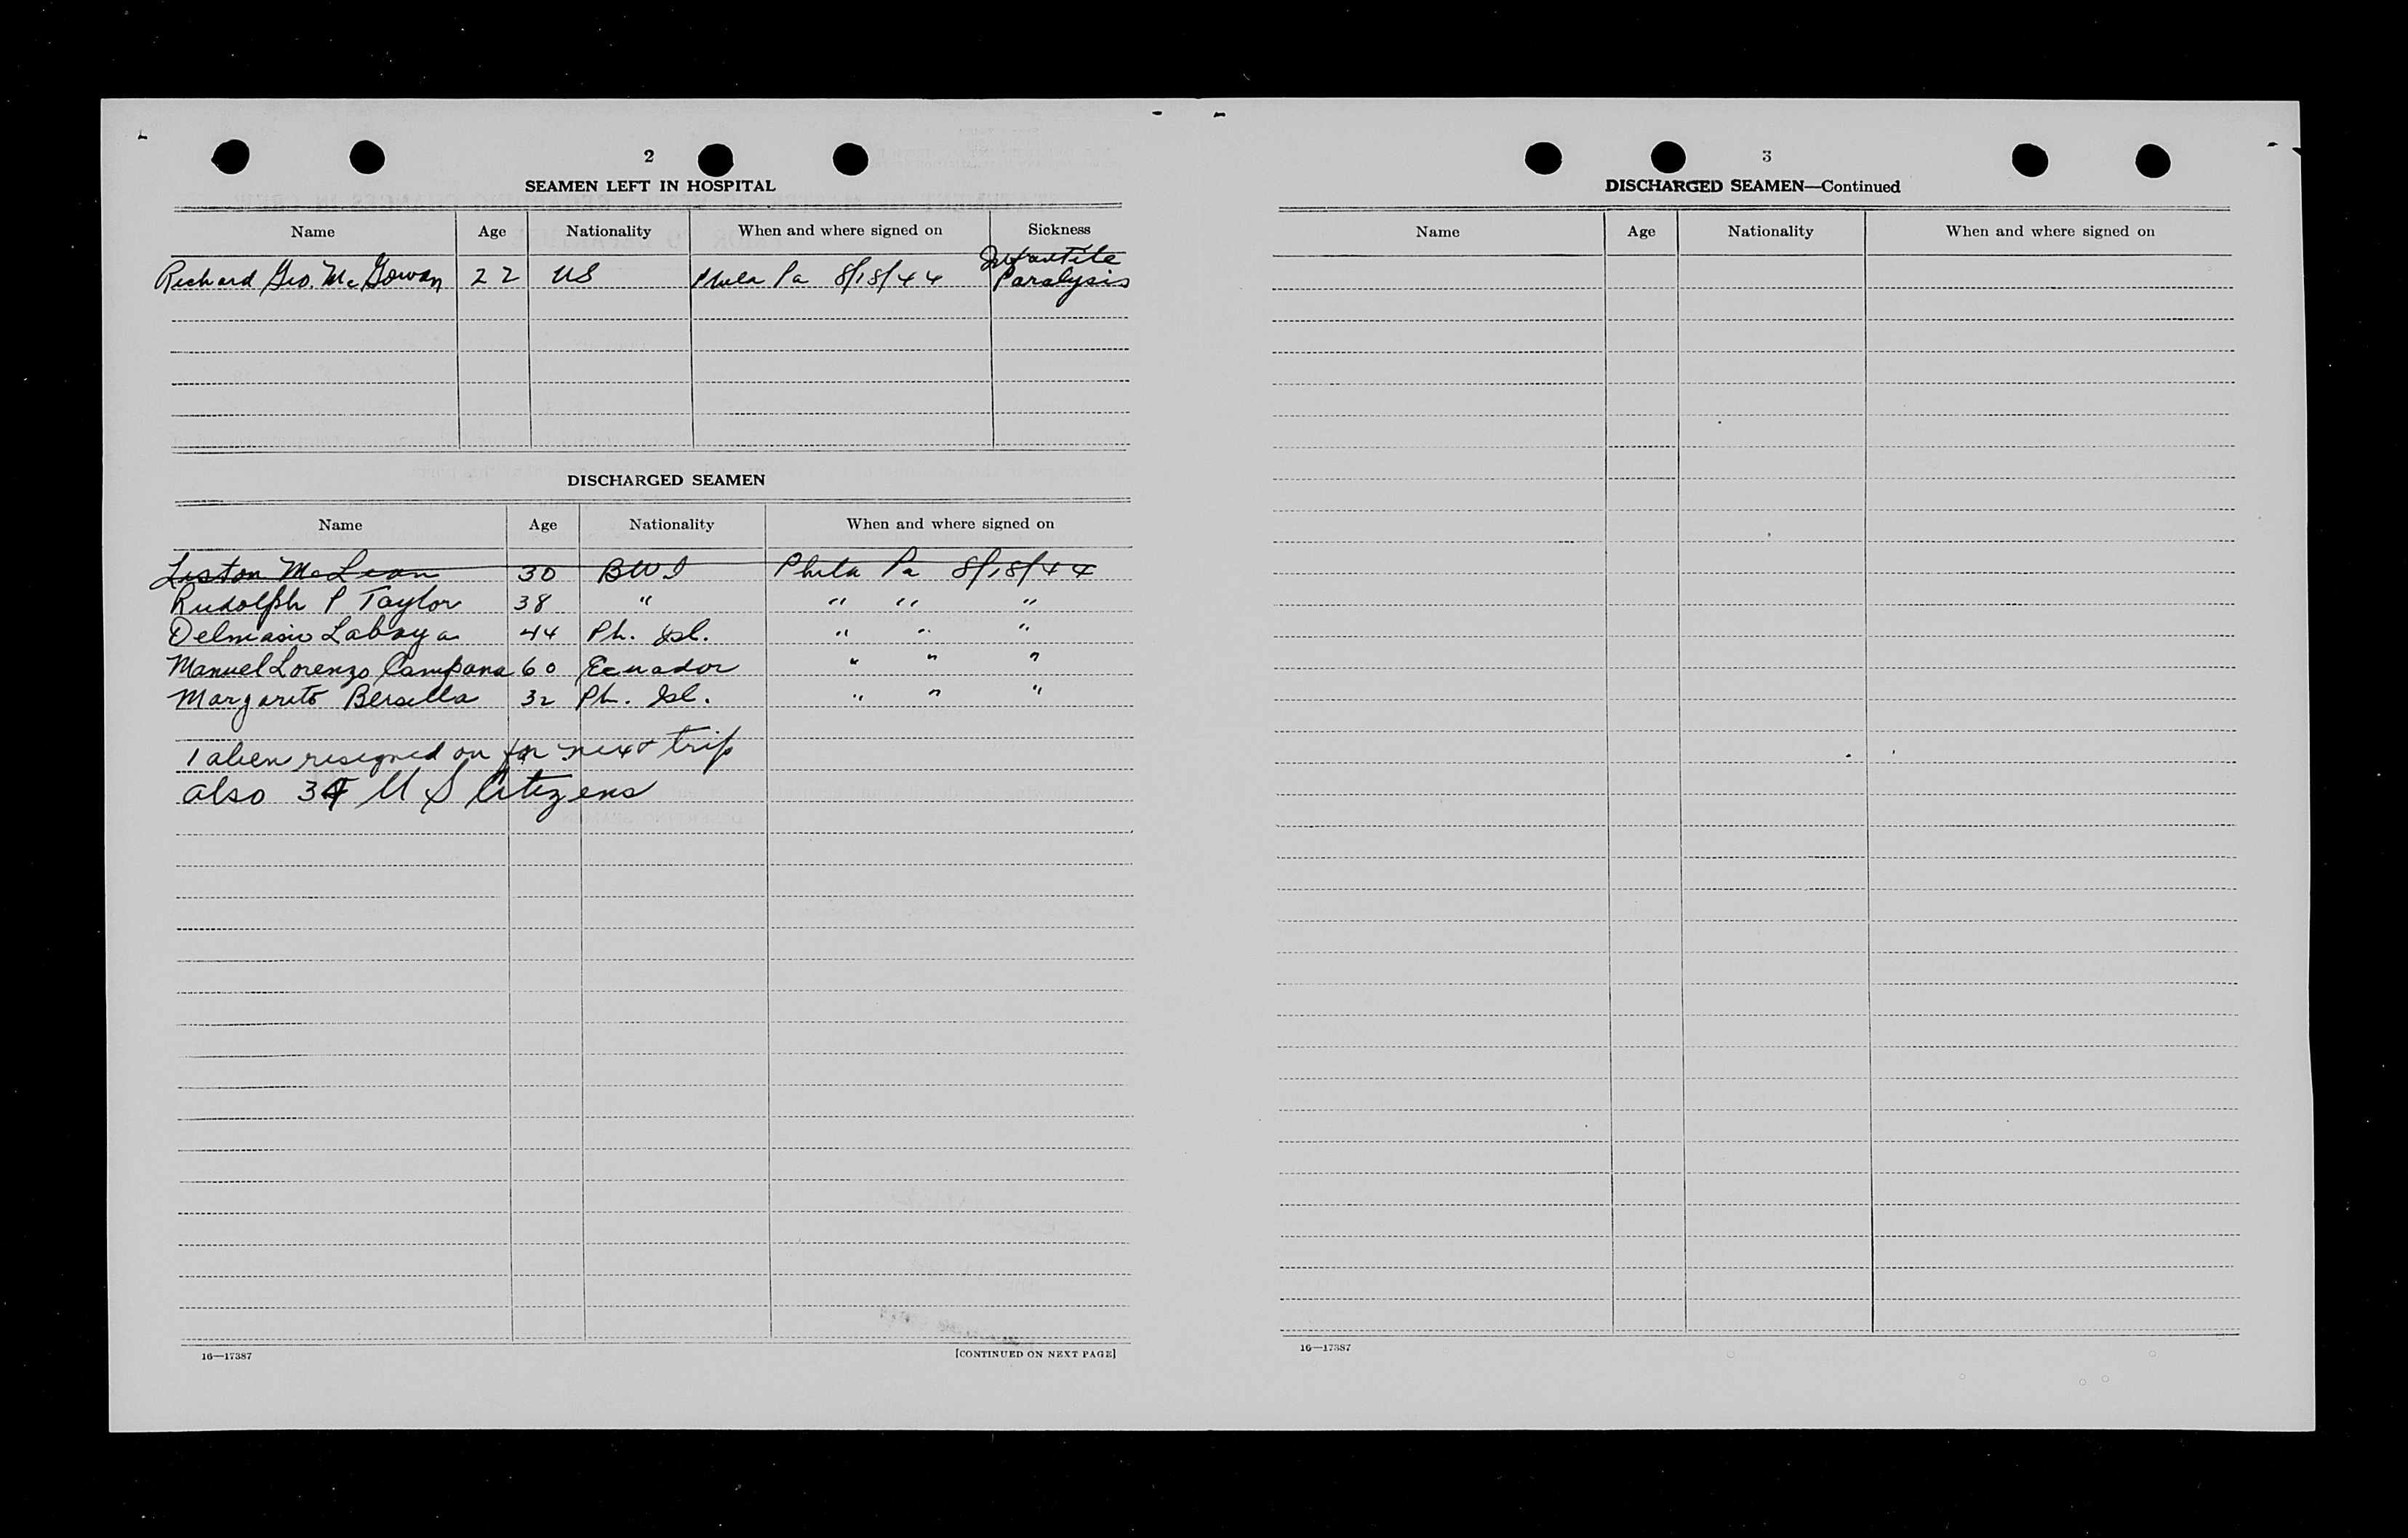 2
SEAMEN LEFT IN HOSPITAL
Name Age Nationality When and where signed on Sickness
Richard Geo. McGowan 22 US Phila Pa 8/18/44 Infantile Paralysis
DISCHARGED SEAMEN
Name Age Nationality When and where signed on
Liston McLean 30 BWI Phila Pa 8/18/44
Rudolph P Taylor 38 " " " "
Delmasio Laboya 44 Ph. Isl. " " "
Manuel Lorenzo Campana 60 Ecuador " " "
Margarito Bersella 32 Ph. Isl. " " "
1 alien resigned on for next trip
also 34 U S Citizens
16—17387 [CONTINUED ON NEXT PAGE]
3
DISCHARGED SEAMEN—Continued
Name Age Nationality When and where signed on
16—17387